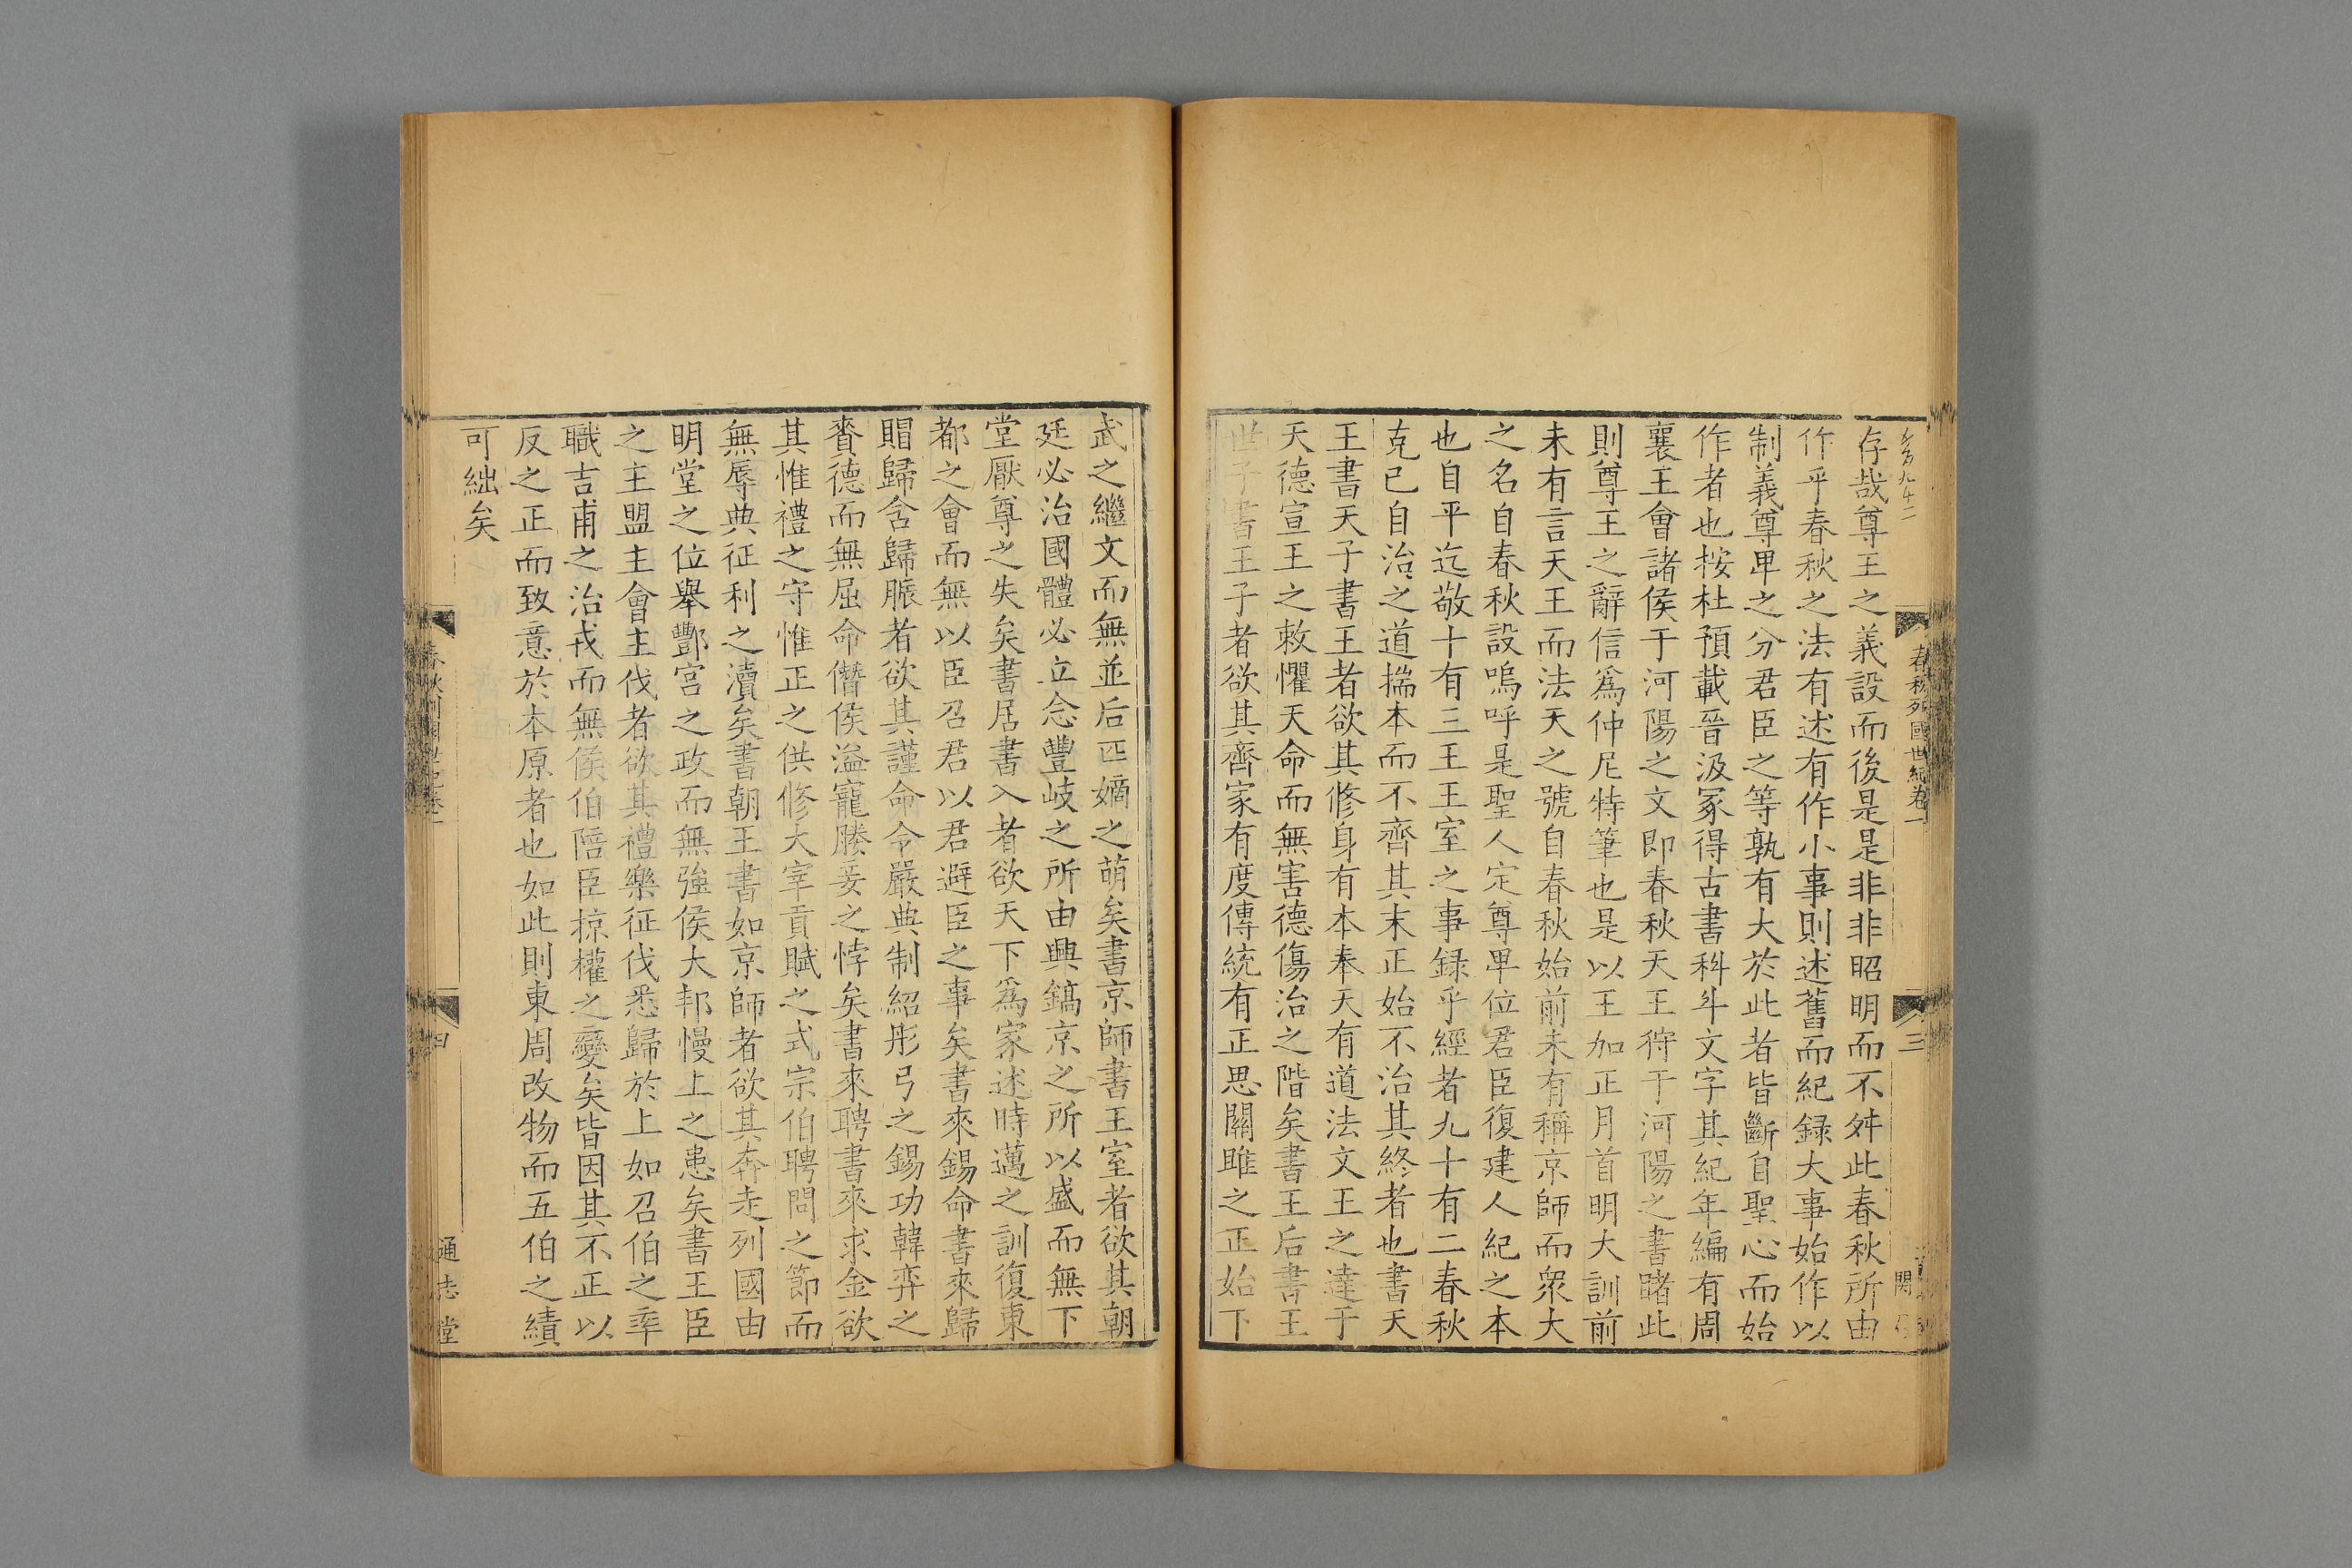 春秋列國世紀卷一
三
存哉尊王之義設而後是是非非昭明而不舛此春秋所由
作乎春秋之法有述有作小事則述舊而紀録大事始作以
制義尊卑之分君臣之等孰有大於此者皆斷自聖心而始
作者也按杜預載晉汲冢得古書科斗文字其紀年編有周
襄王會諸侯于河陽之文即春秋天王狩于河陽之書睹此
則尊王之辭信爲仲尼特筆也是以王加正月首明大訓前
未有言天王而法天之號自春秋始前未有稱京師而衆大
之名自春秋設嗚呼是聖人定尊卑位君臣復建人紀之本
也自平迄敬十有三王王室之事録乎經者九十有二春秋
克已自治之道揣本而不齊其末正始不治其終者也書天
王書天子書王者欲其修身有本奉天有道法文王之達于
天德宣王之敕懼天命而無害德傷治之階矣書王后書王
世子書王子者欲其齊家有度傳統有正思關雎之正始下
武之繼文而無並后匹嫡之萌矣書京師書王室者欲其朝
廷必治國體必立念豐岐之所由興鎬京之所以盛而無下
堂厭尊之失矣書居書入者欲天下爲家述時邁之訓復東
都之會而無以臣召君以君避臣之事矣書來錫命書來歸
賵歸含歸脤者欲其謹命令嚴典制紹彤弓之錫功韓弈之
賚德而無屈命僭侯溢寵媵妾之悖矣書來聘書來求金欲
其惟禮之守惟正之供修大宰貢賦之式宗伯聘問之節而
無辱典征利之瀆矣書朝王書如京師者欲其奔走列國由
明堂之位舉酆宮之政而無強侯大邦慢上之患矣書王臣
之主盟主會主伐者欲其禮樂征伐悉歸於上如召伯之率
職吉甫之治戎而無侯伯陪臣掠權之變矣皆因其不正以
反之正而致意於本原者也如此則東周改物而五伯之績
可絀矣
通志堂